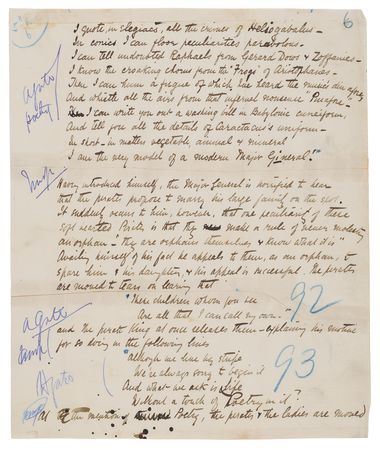 6 6
I quote, in elegiacs, all the crimes of Heliogabalus -
In conics I can floor peculiarities parabolous.
I can tell undoubted Raphaels from Gerard Dows & Zoffanies -
I know the croaking chorus from the Frogs of Aristophanes -
Then I can hum a fugue of which I've heard the music's din afore
And whistle all the airs from that infernal nonsense Pinafore.
I can write you out a washing bill in Babylonic cuneiform,
And tell you all the details of Caractacus's uniform -
In short - in matters vegetable, animal & mineral
I am the very model of a modern Major General!"
Having introduced himself, the Major General is horrified to hear
that the pirates propose to marry his large family on the spot.
It suddenly occurs to him, however, that one peculiarity of these
soft hearted Pirates is that they make a rule of never molesting
an orphan - they are orphans themselves, & know what it is"
Availing himself of this fact he appeals to them, as an orphan, to
spare him & his daughters, & his appeal is successful. The pirates
are moved to tears on learning that
These children whom you see
Are all that I can call my own - 92
and the pirate King at once releases them - explaining his motive
for so doing in the following lines
Although we live by strife 93
We're always sorry to begin it
And what we ask is life
Without a touch of Poetry in it?
At the mention of Poetry, the pirates & the ladies are moved